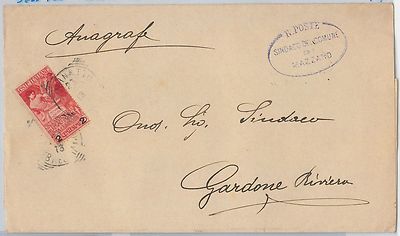 Anagrafe
R. POSTE
SINDACO DEL COMUNE
DI
MAZZANO
2 2
13
Ond. Sig. Sindaco
Gardone Riviera